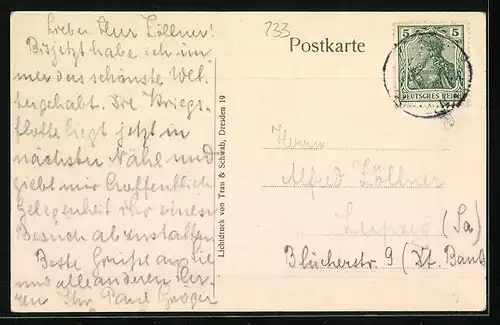 Lieber Herr Zöllner!
Bis jetzt habe ich im
mer das schönste Wet-
ter gehabt. Die Kriegs-
flotte liegt jetzt in
nächster Nähe und
giebt mir hoffentlich
Gelegenheit ihr einen
Besuch abzustatten
Beste Grüße an Sie
und alle anderen Her-
ren Ihr Paul
Lichtdruck von Trau & Schwab, Dresden 19
233
Postkarte
5 5
DEUTSCHES REICH
Herrn
Alfred Zöllner
Leipzig (Sa)
Blücherstr. 9 (Dt. Bank